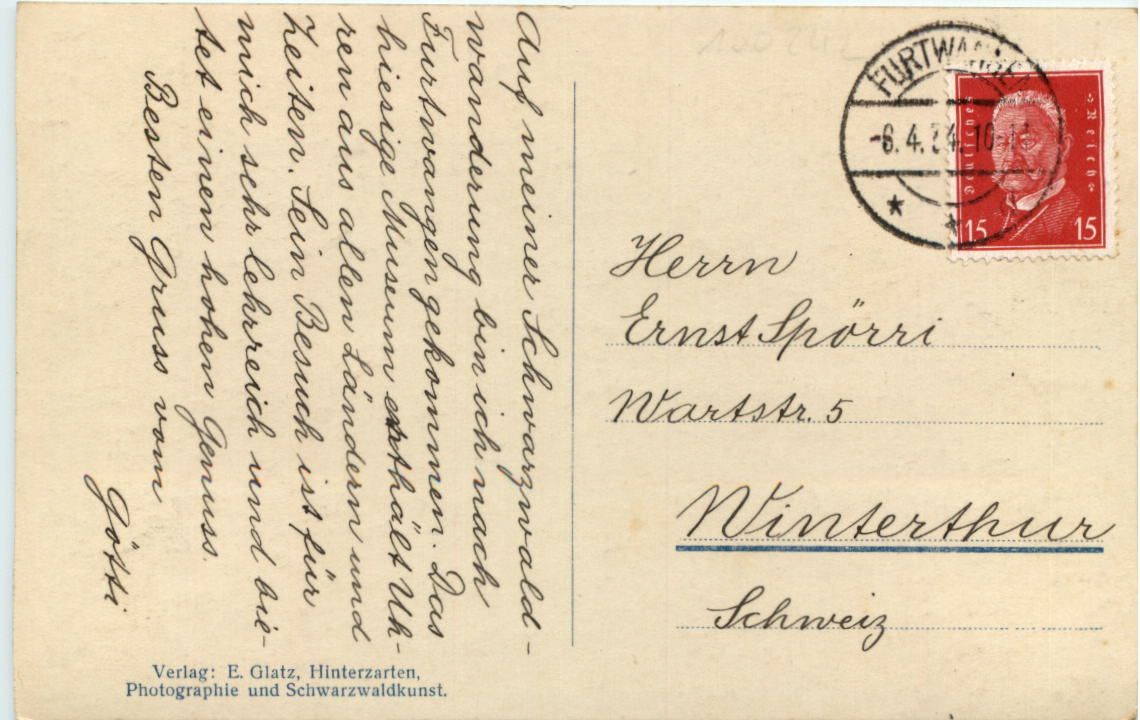 Auf meiner Schwarzwald-
wanderung bin ich nach
Furtwangen gekommen. Das
hiesige Museum enthält Uh-
ren aus allen Ländern und
Zeiten. Sein Besuch ist für
mich sehr lehrreich und bie-
tet einen hohen Genuss.
Besten Gruss vom
Götti
Verlag: E. Glatz, Hinterzarten,
Photographie und Schwarzwaldkunst.
FURTWANGEN
-6.4.24.10-11
Deutsches Reich
15 15
Herrn
Ernst Spörri
Wartstr. 5
Winterthur
Schweiz